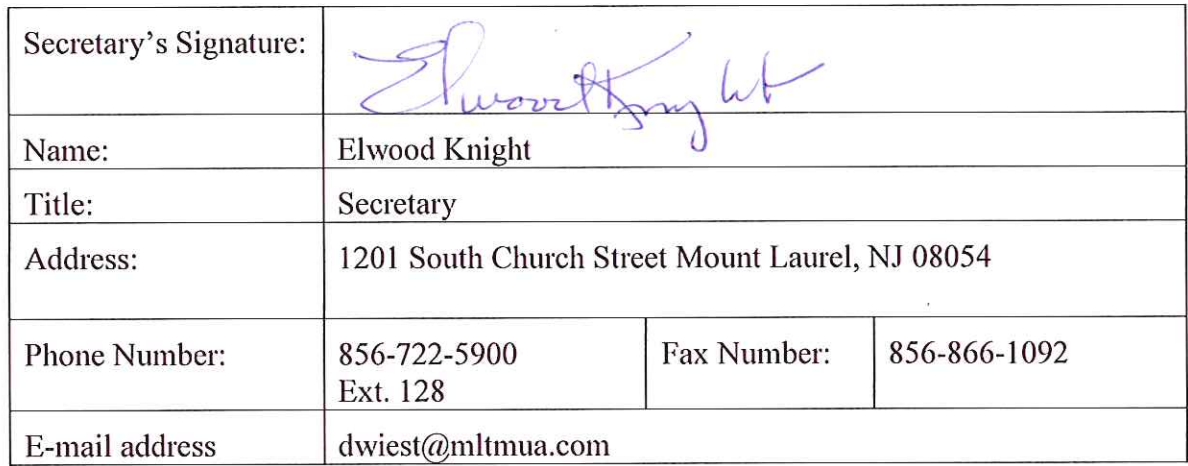 Secretary's Signature: Elwood Knight
Name: Elwood Knight
Title: Secretary
Address: 1201 South Church Street Mount Laurel, NJ 08054
Phone Number: 856-722-5900 Fax Number: 856-866-1092
Ext. 128
E-mail address dwiest@mltmua.com